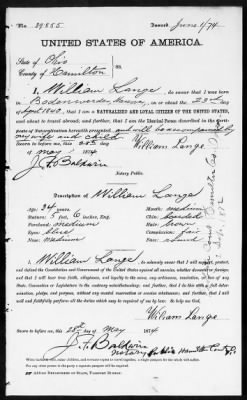 No. 39855 Issued June 1/74
UNITED STATES OF AMERICA.
State of Ohio
County of Hamilton ss.
I, William Lange, do swear that I was born
in Bodenwerder, Hanover, on or about the 23rd day of
April 1840, that I am a NATURALIZED AND LOYAL CITIZEN OF THE UNITED STATES,
and about to travel abroad, and further, that I am the identical Person described in the
of Naturalization herewith presented, and will be accompanied by
my wife and child
Sworn to before me, this 28th day
of May 1874 William Lange
J. F. Baldwin
Notary Public.
Description of William Lange
Age: 34 years. Mouth: medium
Stature: 5 feet, 6 inches, Eng. Chin: bearded
Forehead: medium Hair: brown
Eyes: blue Complexion: fair
Nose: medium Face: round
I, William Lange, do solemnly swear that I will support, protect,
and defend the Constitution and Government of the United States against all enemies, whether domestic or foreign;
and that I will bear true faith, allegiance, and loyalty to the same, any ordinance, resolution, or law of any State,
Convention or Legislature to the contrary notwithstanding; and further, that I do this with a full deter-
mination, pledge, and purpose, without any mental reservation or evasion whatsoever; and further, that I will
well and faithfully perform all the duties which may be required of me by law. So help me God,
William Lange
Sworn to before me, this 28th day May 1874
J. F. Baldwin
Notary Public Hamilton Co. O.